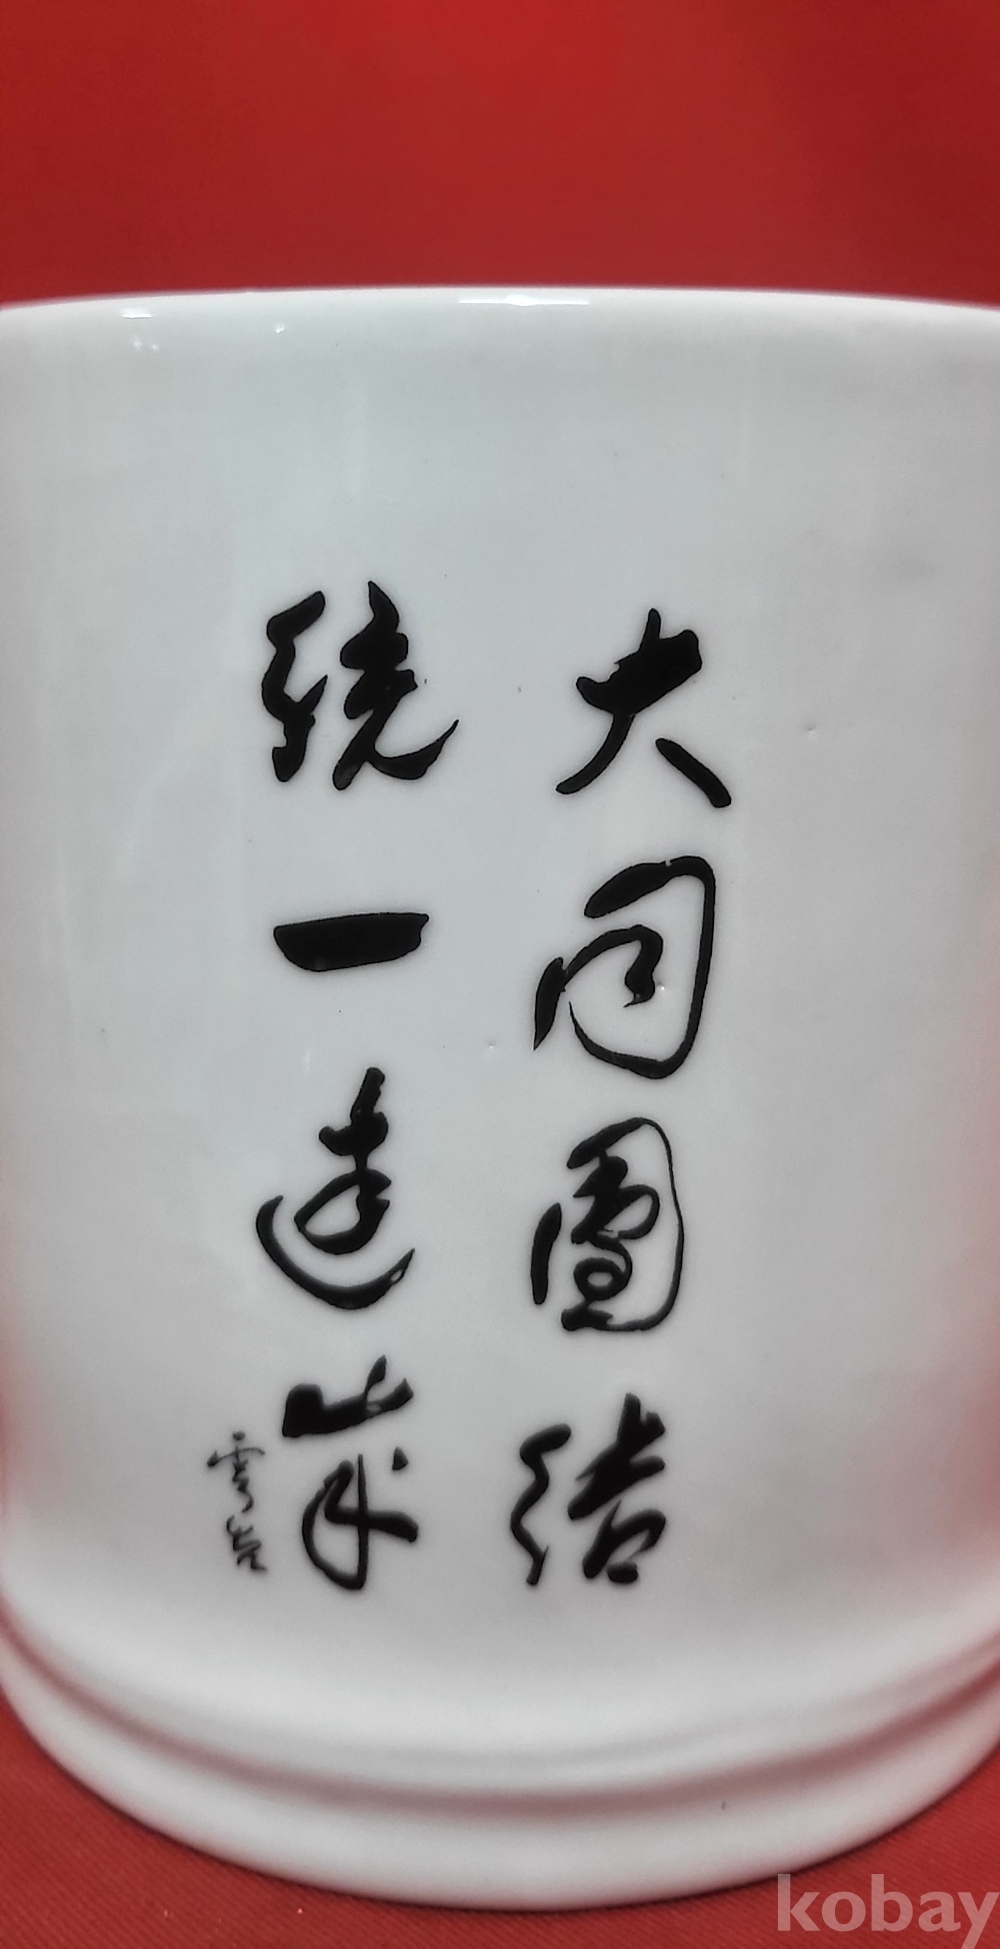 大同團結
統一達成
kobay